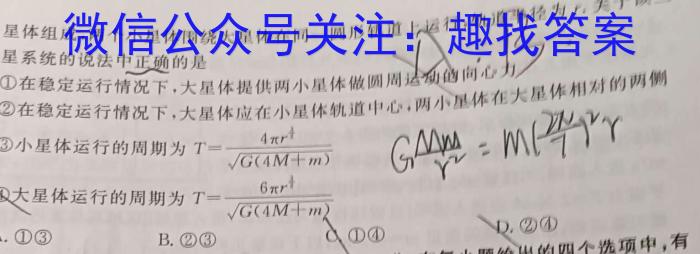 星体组成
微信公众号关注：趣找答案
星系统的说法中正确的是
①在稳定运行情况下，大星体提供两小星体做圆周运动的向心力
②在稳定运行情况下，大星体应在小星体轨道中心，两小星体在大星体相对的两侧
③小星体运行的周期为 T=4πr^{3/2}/√G(4M+m)
G Mm/r² = m(2π/T)²r
④大星体运行的周期为 T=6πr^{3/2}/√G(4M+m)
A. ①③ B. ②③ C. ①④ D. ②④
出的四个选项中，有